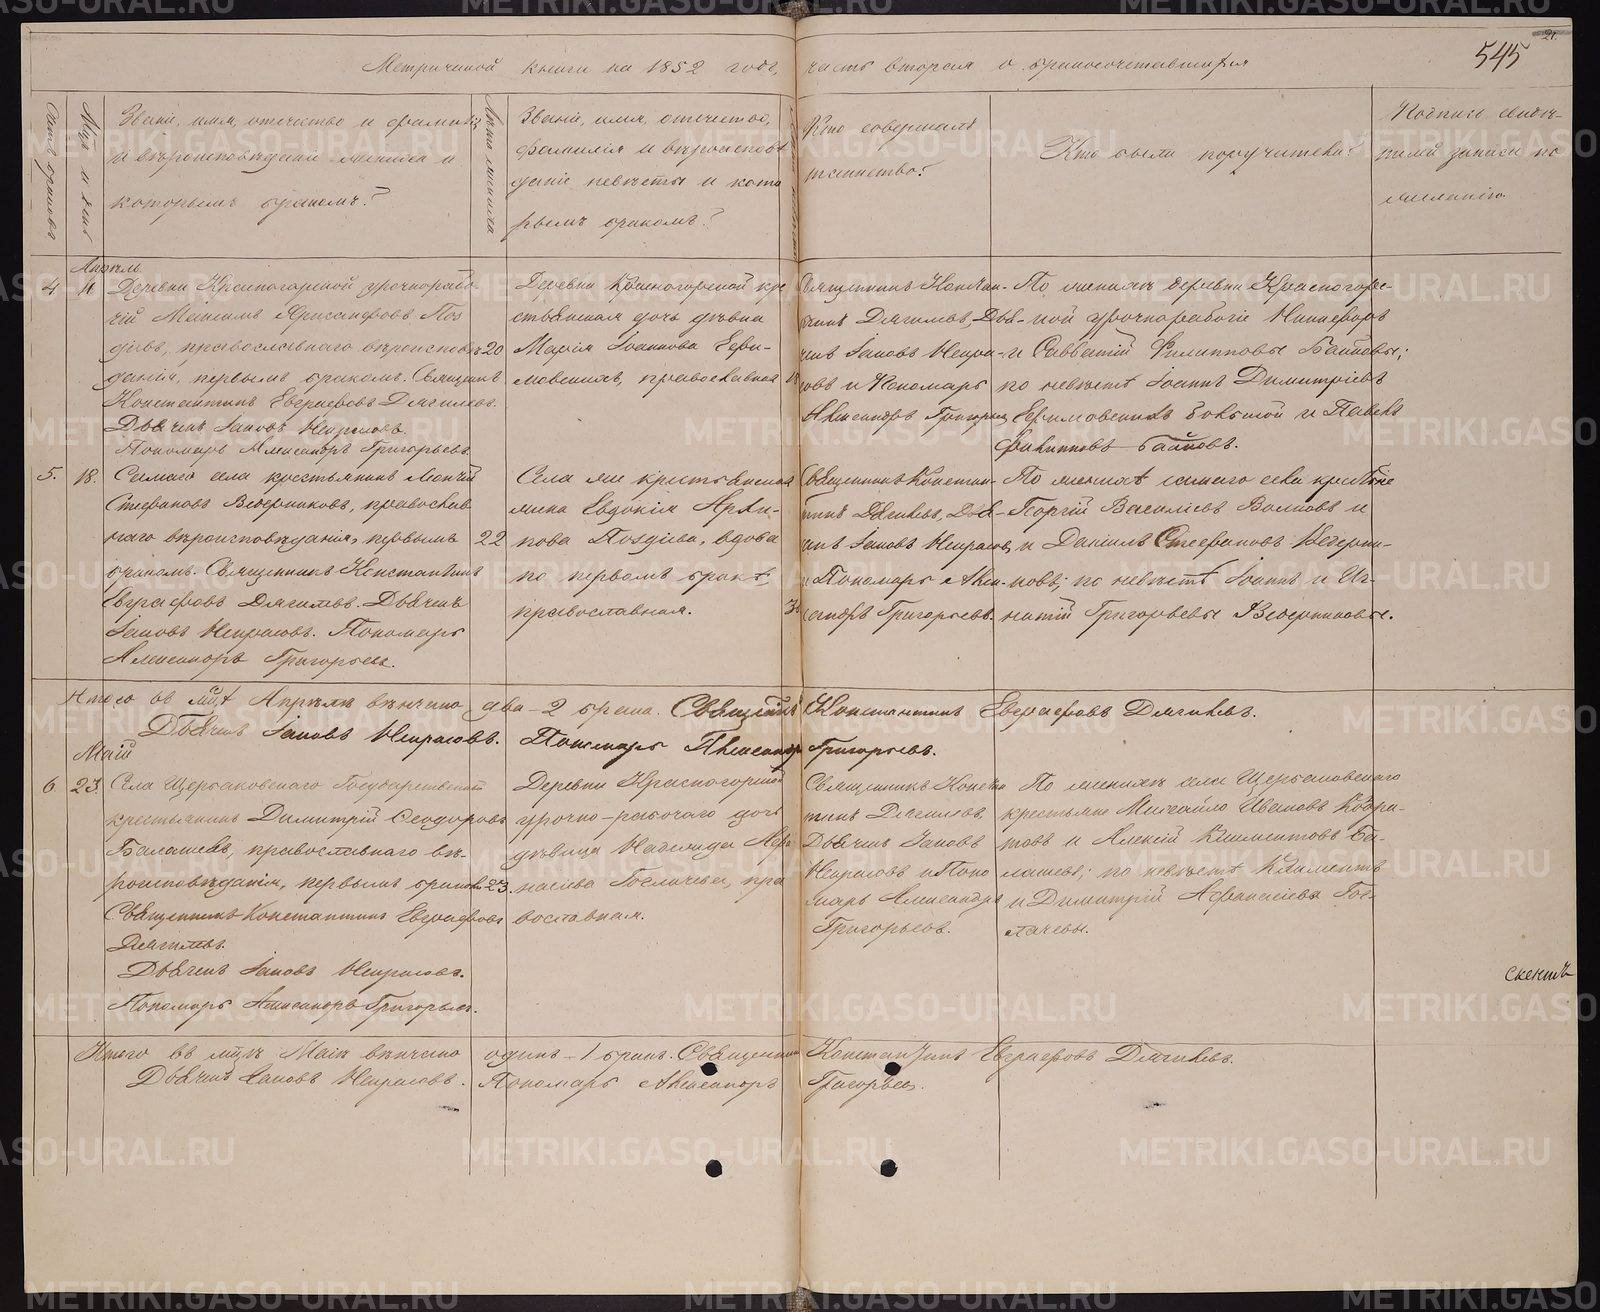 545
21.
Метрической книги на 1852 годъ, часть вторая о бракосочетавшихся
Счетъ браковъ
Мѣсяцъ и день
Званіе, имя, отечество и фамилія
и вѣроисповѣданіе жениха и
которымъ бракомъ?
Лѣта жениха
Званіе, имя, отечество,
фамилія и вѣроиспове
даніе невѣсты и кото
рымъ бракомъ?
Кто совершалъ
таинство?
Кто были поручители?
Подпись свидѣ-
телей записи по
желанію
Апрѣль
4
Деревни Красногорской урочнорабо-
чій Максимъ
православнаго вѣроиспов
данія, первымъ бракомъ. Священникъ
Константинъ Евграфовъ Дягилевъ.
Дьячекъ Іаковъ Некрасовъ.
Пономарь Александръ Григорьевъ.
20
Деревни Красногорской кре
стьянская дочь дѣвица
Марія Іоаннова Ефи-
мовскихъ, православная
Священникъ Констан-
тинъ Дягилевъ, Дья-
чекъ Іаковъ Некра-
совъ и Пономарь
Александръ Григорьевъ
По женихѣ деревни Красногорс-
кой урочнорабочіе Никифоръ
и Савватій Филипповы
по невѣстѣ Іоаннъ Димитріевъ
Ефимовскихъ большой и Павелъ
Филипповъ
5. 18.
Самаго села крестьянинъ
Стефановъ Ведерниковъ, православ
наго вѣроисповѣданія, первымъ
бракомъ. Священникъ Константинъ
Евграфовъ Дягилевъ. Дьячекъ
Іаковъ Некрасовъ. Пономарь
Александръ Григорьевъ.
22
Села же крестьянская
жена Евдокія Архи-
пова Поздѣева, вдова
по первомъ бракѣ,
православная.
Священникъ Констан-
тинъ Дягилевъ, Дья-
чекъ Іаковъ Некрасовъ
и Пономарь Алек-
сандръ Григорьевъ.
По женихѣ самаго села крестьяне
Георгій Василіевъ Волковъ и
и Даніилъ Стефановъ Ведерни-
ковъ; по невѣстѣ Іоаннъ и Иг-
натій Григорьевы Ведерниковы.
Итого въ мцѣ Апрѣлѣ вѣнчано два - 2 брака. Священникъ Константинъ Евграфовъ Дягилевъ.
Дьячекъ Іаковъ Некрасовъ. Пономарь Александръ Григорьевъ.
Май
6 23.
Села Щербаковскаго Государственный
крестьянинъ Димитрій Феодоровъ
Балашевъ, православнаго вѣ-
роисповѣданія, первымъ бракомъ
Священникъ Константинъ Евграфовъ
Дягилевъ.
Дьячекъ Іаковъ Некрасовъ.
Пономарь Александръ Григорьевъ.
23.
Деревни Красногорской
урочно-рабочаго дочь
дѣвица Надежда Афа
насіева Гослачева, пра
вославная.
Священникъ Конста
тинъ Дягилевъ
Дьячекъ Іаковъ
Некрасовъ и Поно
марь Александръ
Григорьевъ.
По женихѣ села Щербаковскаго
крестьяне Михайло Ивановъ
и Алексій Климентовъ Ба-
лашевъ; по невѣстѣ Климентъ
и Димитрій Афанасіевы Гос-
лачевы.
Итого въ мцѣ Маіѣ вѣнчано одинъ - 1 бракъ. Священникъ Константинъ Евграфовъ Дягилевъ.
Дьячекъ Іаковъ Некрасовъ. Пономарь Александръ Григорьевъ.
METRIKI.GASO-URAL.RU